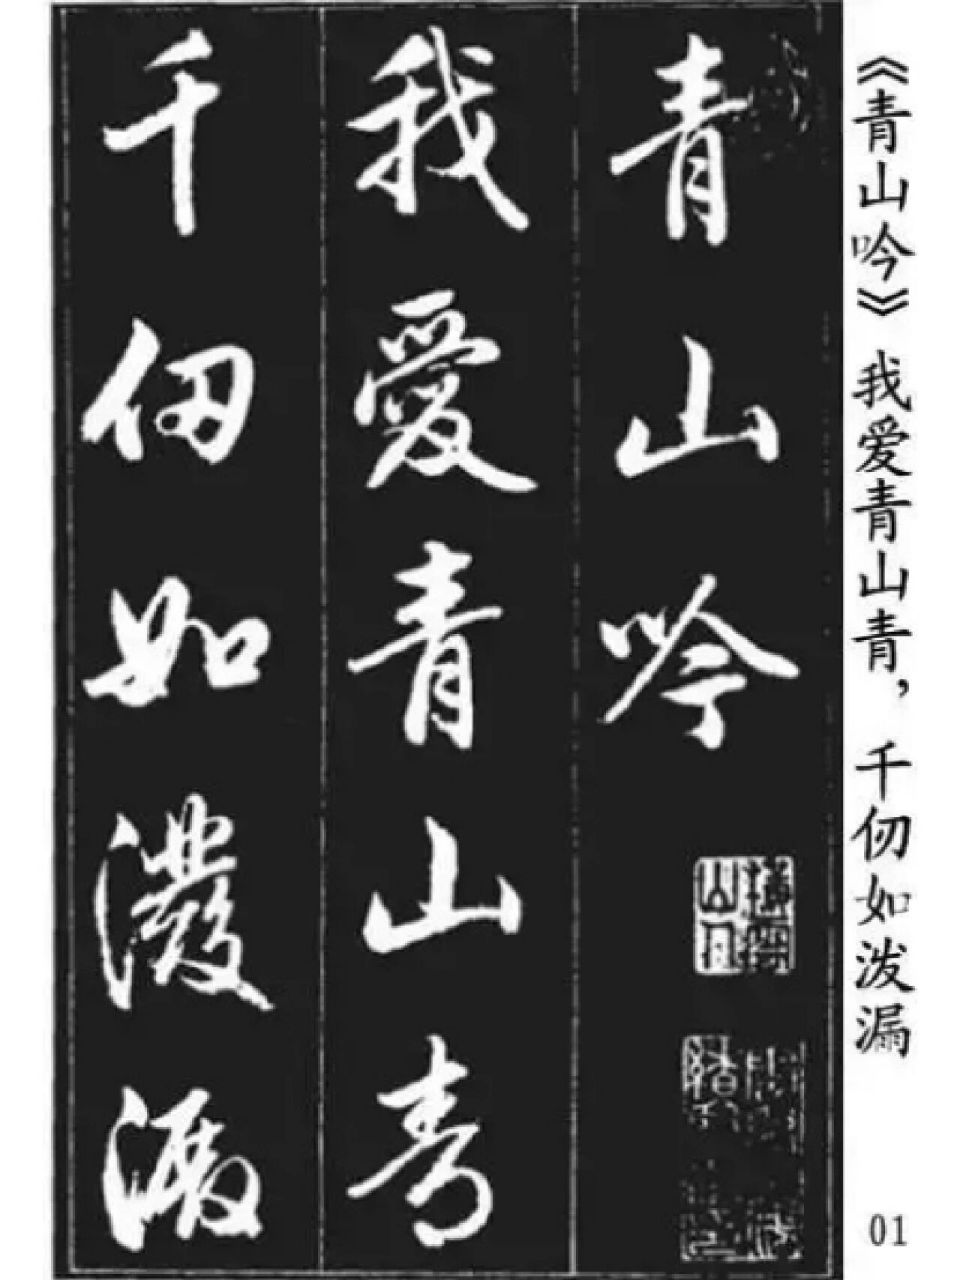 《青山吟》我爱青山青，千仞如泼漏
01
青山吟
我愛青山青
千仞如潑漏